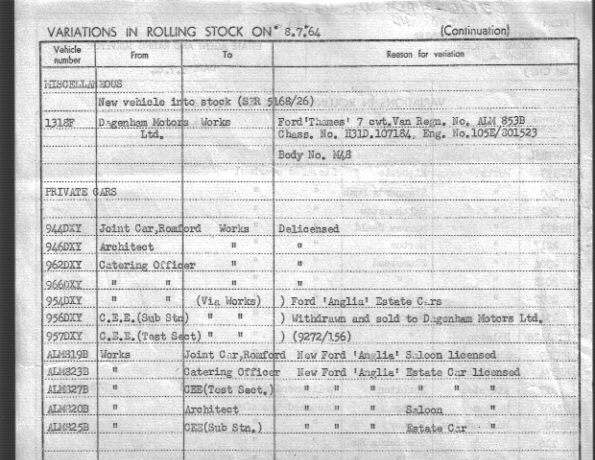 VARIATIONS IN ROLLING STOCK ON 8.7.64 (Continuation)
Vehicle number From To Reason for variation
MISCELLANEOUS
New vehicle into stock (SFR 5168/26)
1318F Dagenham Motors Works Ford 'Thames' 7 cwt.Van Regn. No. ALM 853B
Ltd. Chass. No. H31D.107184. Eng. No.105E/S01523
Body No. M48
PRIVATE CARS
944DXY Joint Car,Romford Works Delicensed
946DXY Architect " "
962DXY Catering Officer " "
966DXY " " " "
954DXY (Via Works) ) Ford 'Anglia' Estate Cars
956DXY C.E.E.(Sub Stn) " " ) Withdrawn and sold to Dagenham Motors Ltd.
957DXY C.E.E.(Test Sect) " " ) (9272/156)
ALM819B Works Joint Car,Romford New Ford 'Anglia' Saloon licensed
ALM823B " Catering Officer New Ford 'Anglia' Estate Car licensed
ALM827B " CEE(Test Sect.) " " " " " "
ALM820B " Architect " " " Saloon "
ALM825B " CEE(Sub Stn.) " " " Estate Car "